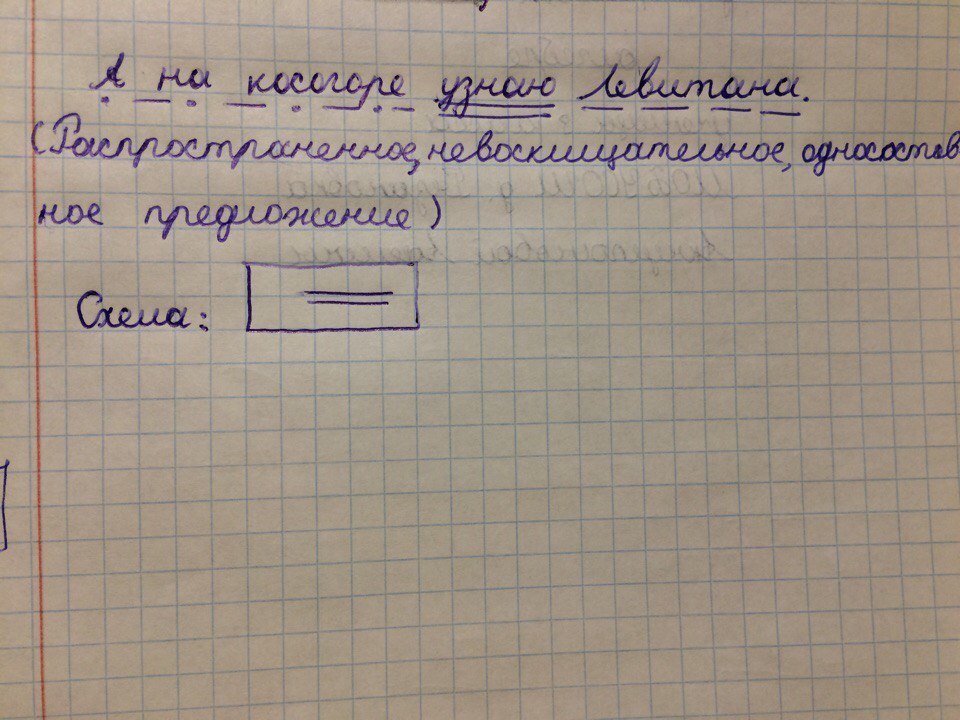 А на косогоре узнаю Левитана.
(Распространенное, невосклицательное, односостав
ное предложение)
Схема: